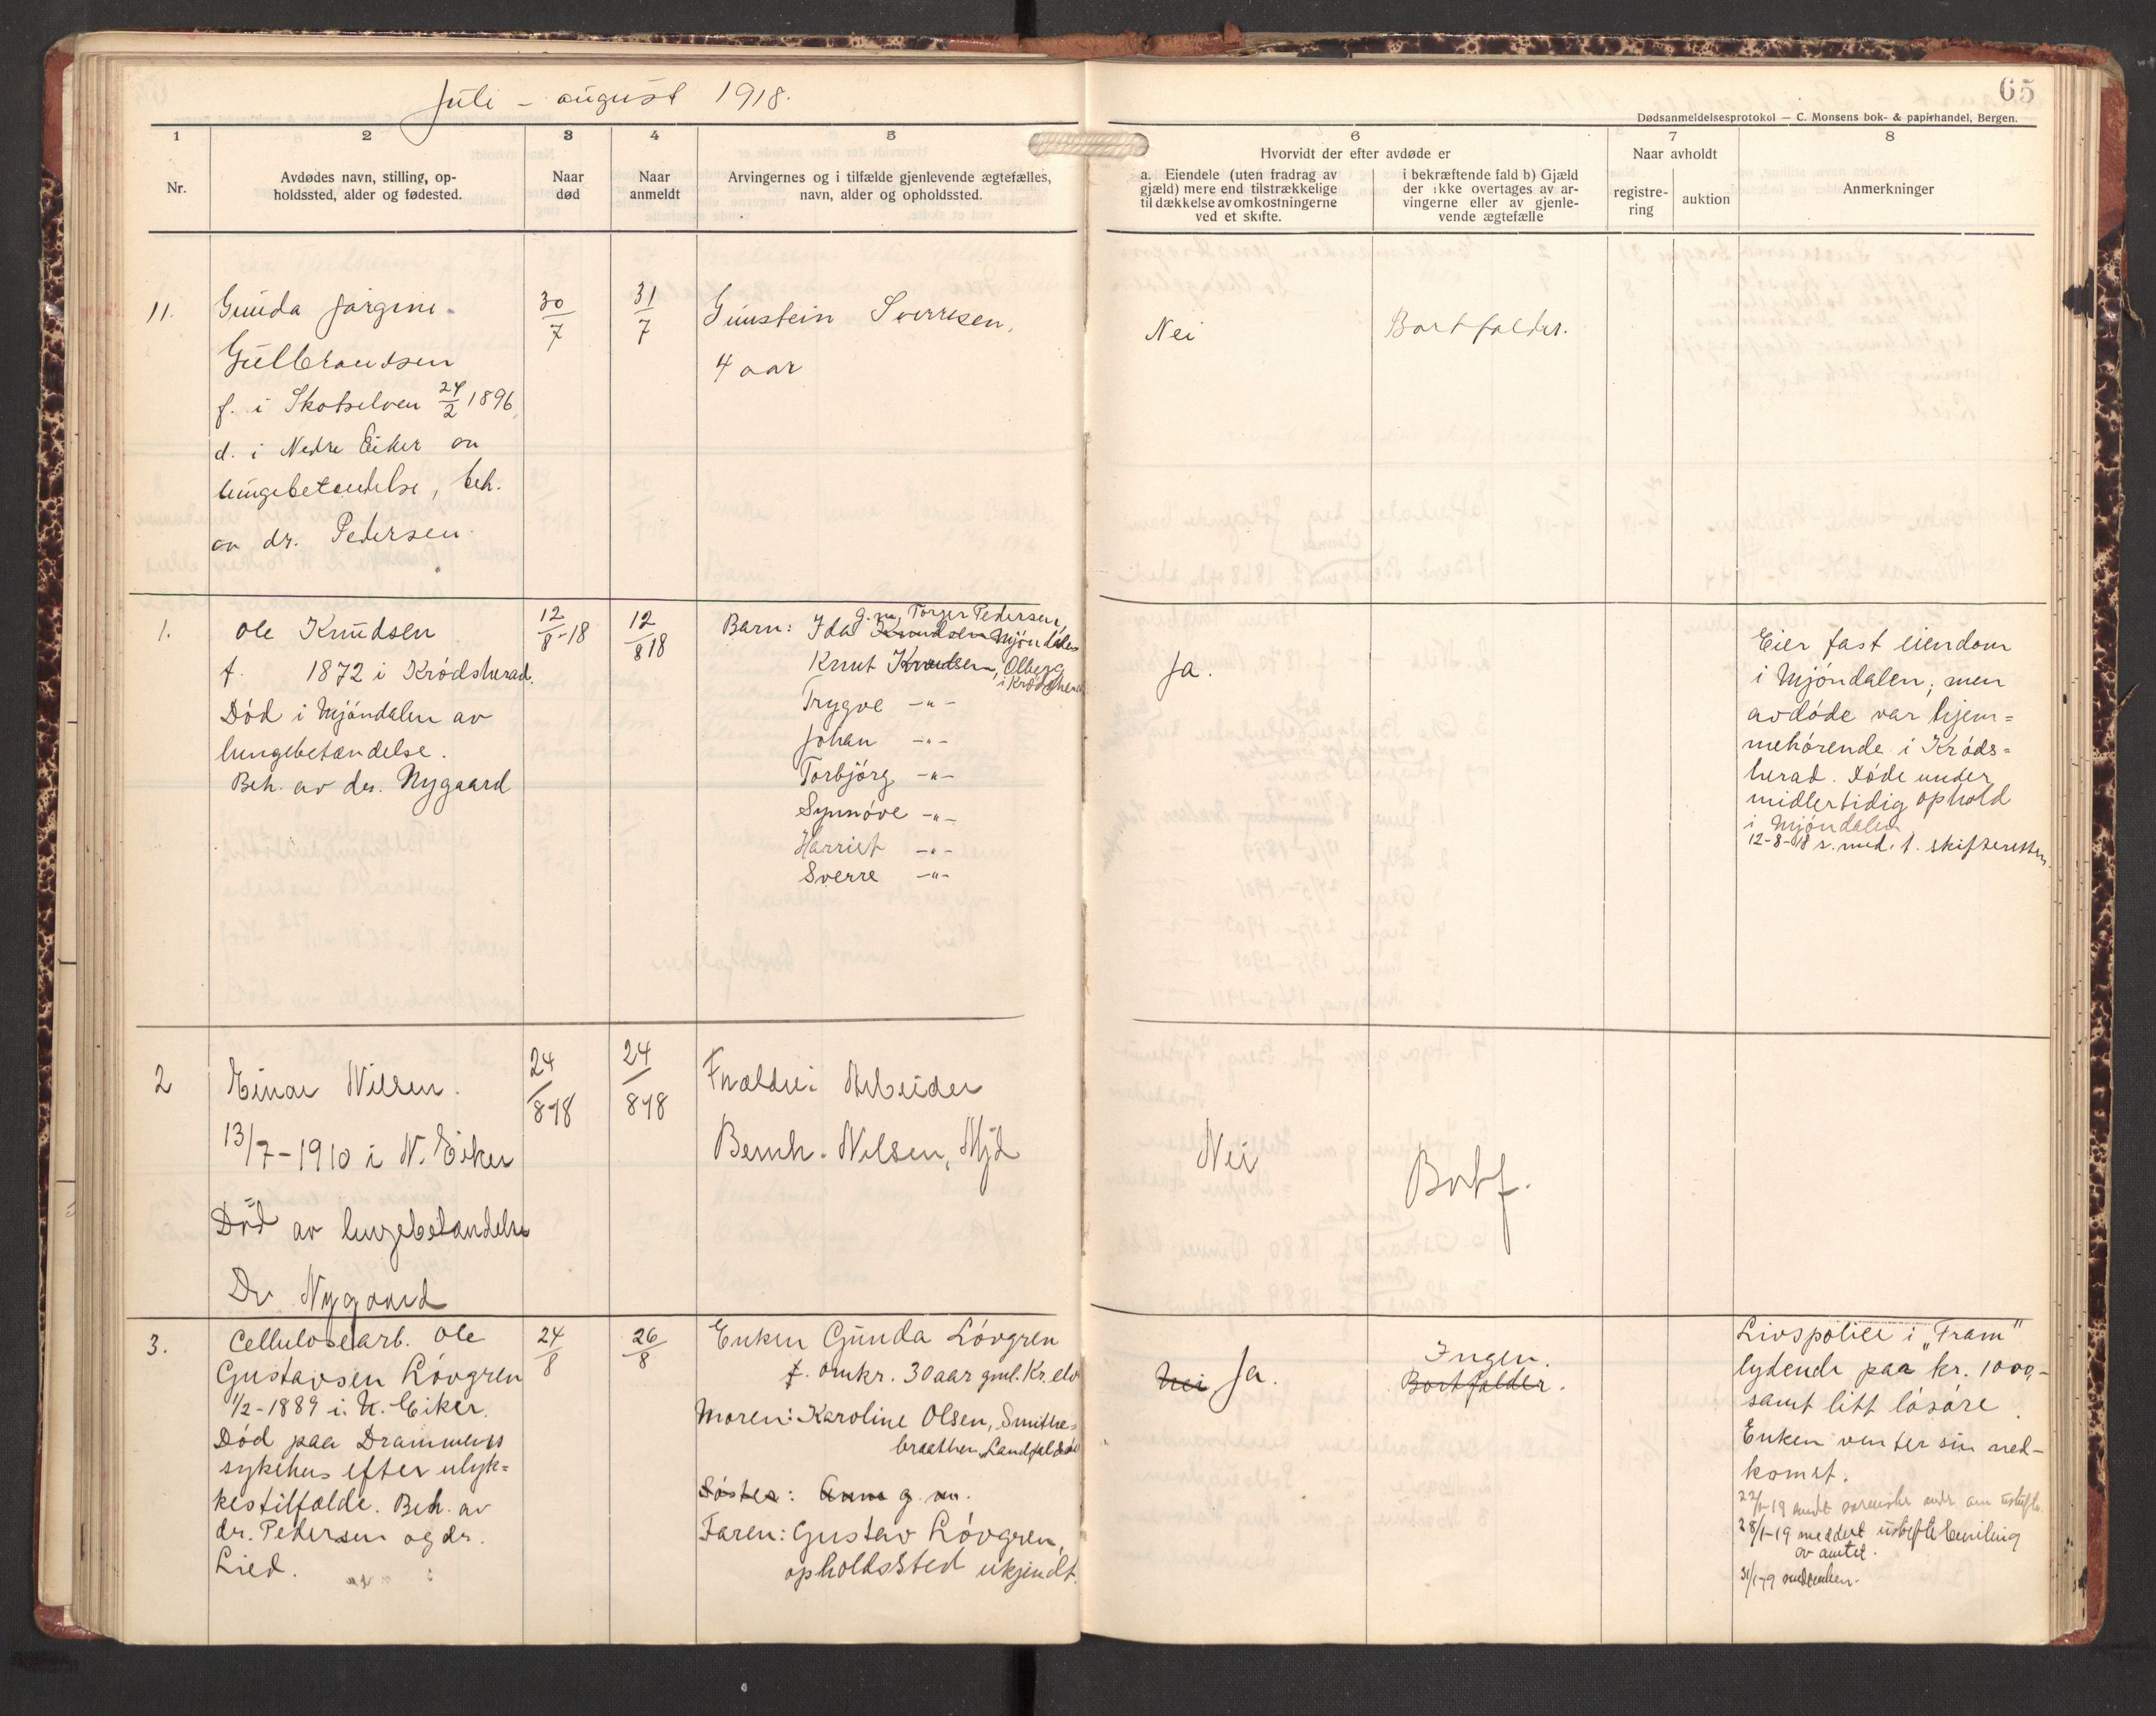 Juli - august 1918.
65
Dødsanmeldelsesprotokol — C. Monsens bok- & papirhandel, Bergen.
1
2
3
4
5
6
7
8
Nr.
Avdødes navn, stilling, op-
holdssted, alder og fødested.
Naar
død
Naar
anmeldt
Arvingernes og i tilfælde gjenlevende ægtefælles,
navn, alder og opholdssted.
Hvorvidt der efter avdøde er
a. Eiendele (uten fradrag av
gjæld) mere end tilstrækkelige
til dækkelse av omkostningerne
ved et skifte.
i bekræftende fald b) Gjæld
der ikke overtages av ar-
vingerne eller av gjenle-
vende ægtefælle
Naar avholdt
registre-
ring
auktion
Anmerkninger
11.
Gunda Jørgine
Gulbrandsen
f. i Skotselven 24/2 1896,
d. i Nedre Eiker av
lungebetændelse, beh.
av dr. Pedersen.
30/7
31/7
Gunstein Sverresen,
4 aar
Nei
Bortfalder.
1.
Ole Knudsen
f. 1872 i Krødsherad.
Død i Mjøndalen av
lungebetændelse.
Beh. av dr. Nygaard
12/8-18
12/8 18
g.m. Torger Pedersen,
Barn: Ida Knudsen Mjøndalen
Knut Knudsen, Olberg
i Krødsherad
Trygve -"-
Johan -"-
Torbjørg -"-
Synnøve -"-
Harriet -"-
Sverre -"-
Ja.
Eier fast eiendom
i Mjøndalen, men
avdøde var hjem=
mehørende i Krøds=
herad. Døde under
midlertidig ophold
i Mjøndalen
12-8-18 s. med. t. skifteretten.
2
Einar Nilsen.
13/7-1910 i N. Eiker
Død av lungebetændelse
Dr Nygaard
24/8-18
24/8-18
Forældre: Arbeider
Bernh. Nilsen, Mjd
Nei
Bortf.
3.
Cellulosearb. Ole
Gustavsen Løvgren
1/2-1889 i. N. Eiker.
Død paa Drammens
sykehus efter ulyk=
kestilfælde. Beh. av
dr. Pedersen og dr.
Lied.
24/8
26/8
Enken Gunda Løvgren
f. omkr. 30 aar gml. Kr.elv
Moren: Karoline Olsen, Smithe=
braathen, Landfaldøen
Søster: Anna g. m.
Faren: Gustav Løvgren,
opholdssted ukjendt.
Nei, Ja.
Ingen.
Bortfalder.
Livspolice i "Fram"
lydende paa kr. 1000,-
samt litt løsøre.
Enken venter sin ned-
komst.
28/1-19 meddelt uskiftebevilling
av amtet.